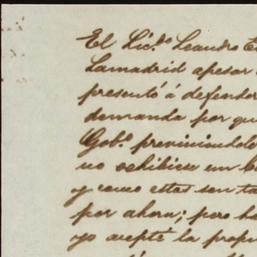 El Lic.do Leandro E
Lamadrid apesar
presentó á defender
demanda por qu
Gob.o previniendole
no exhibiese un b
y como estas son ta
por ahora; pero h
yo acepté la prop